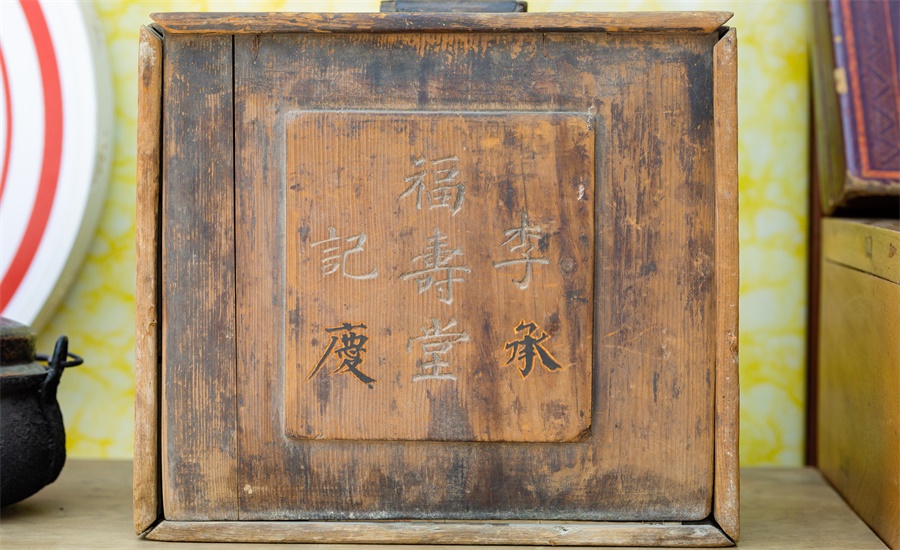 李承
福壽堂
記慶